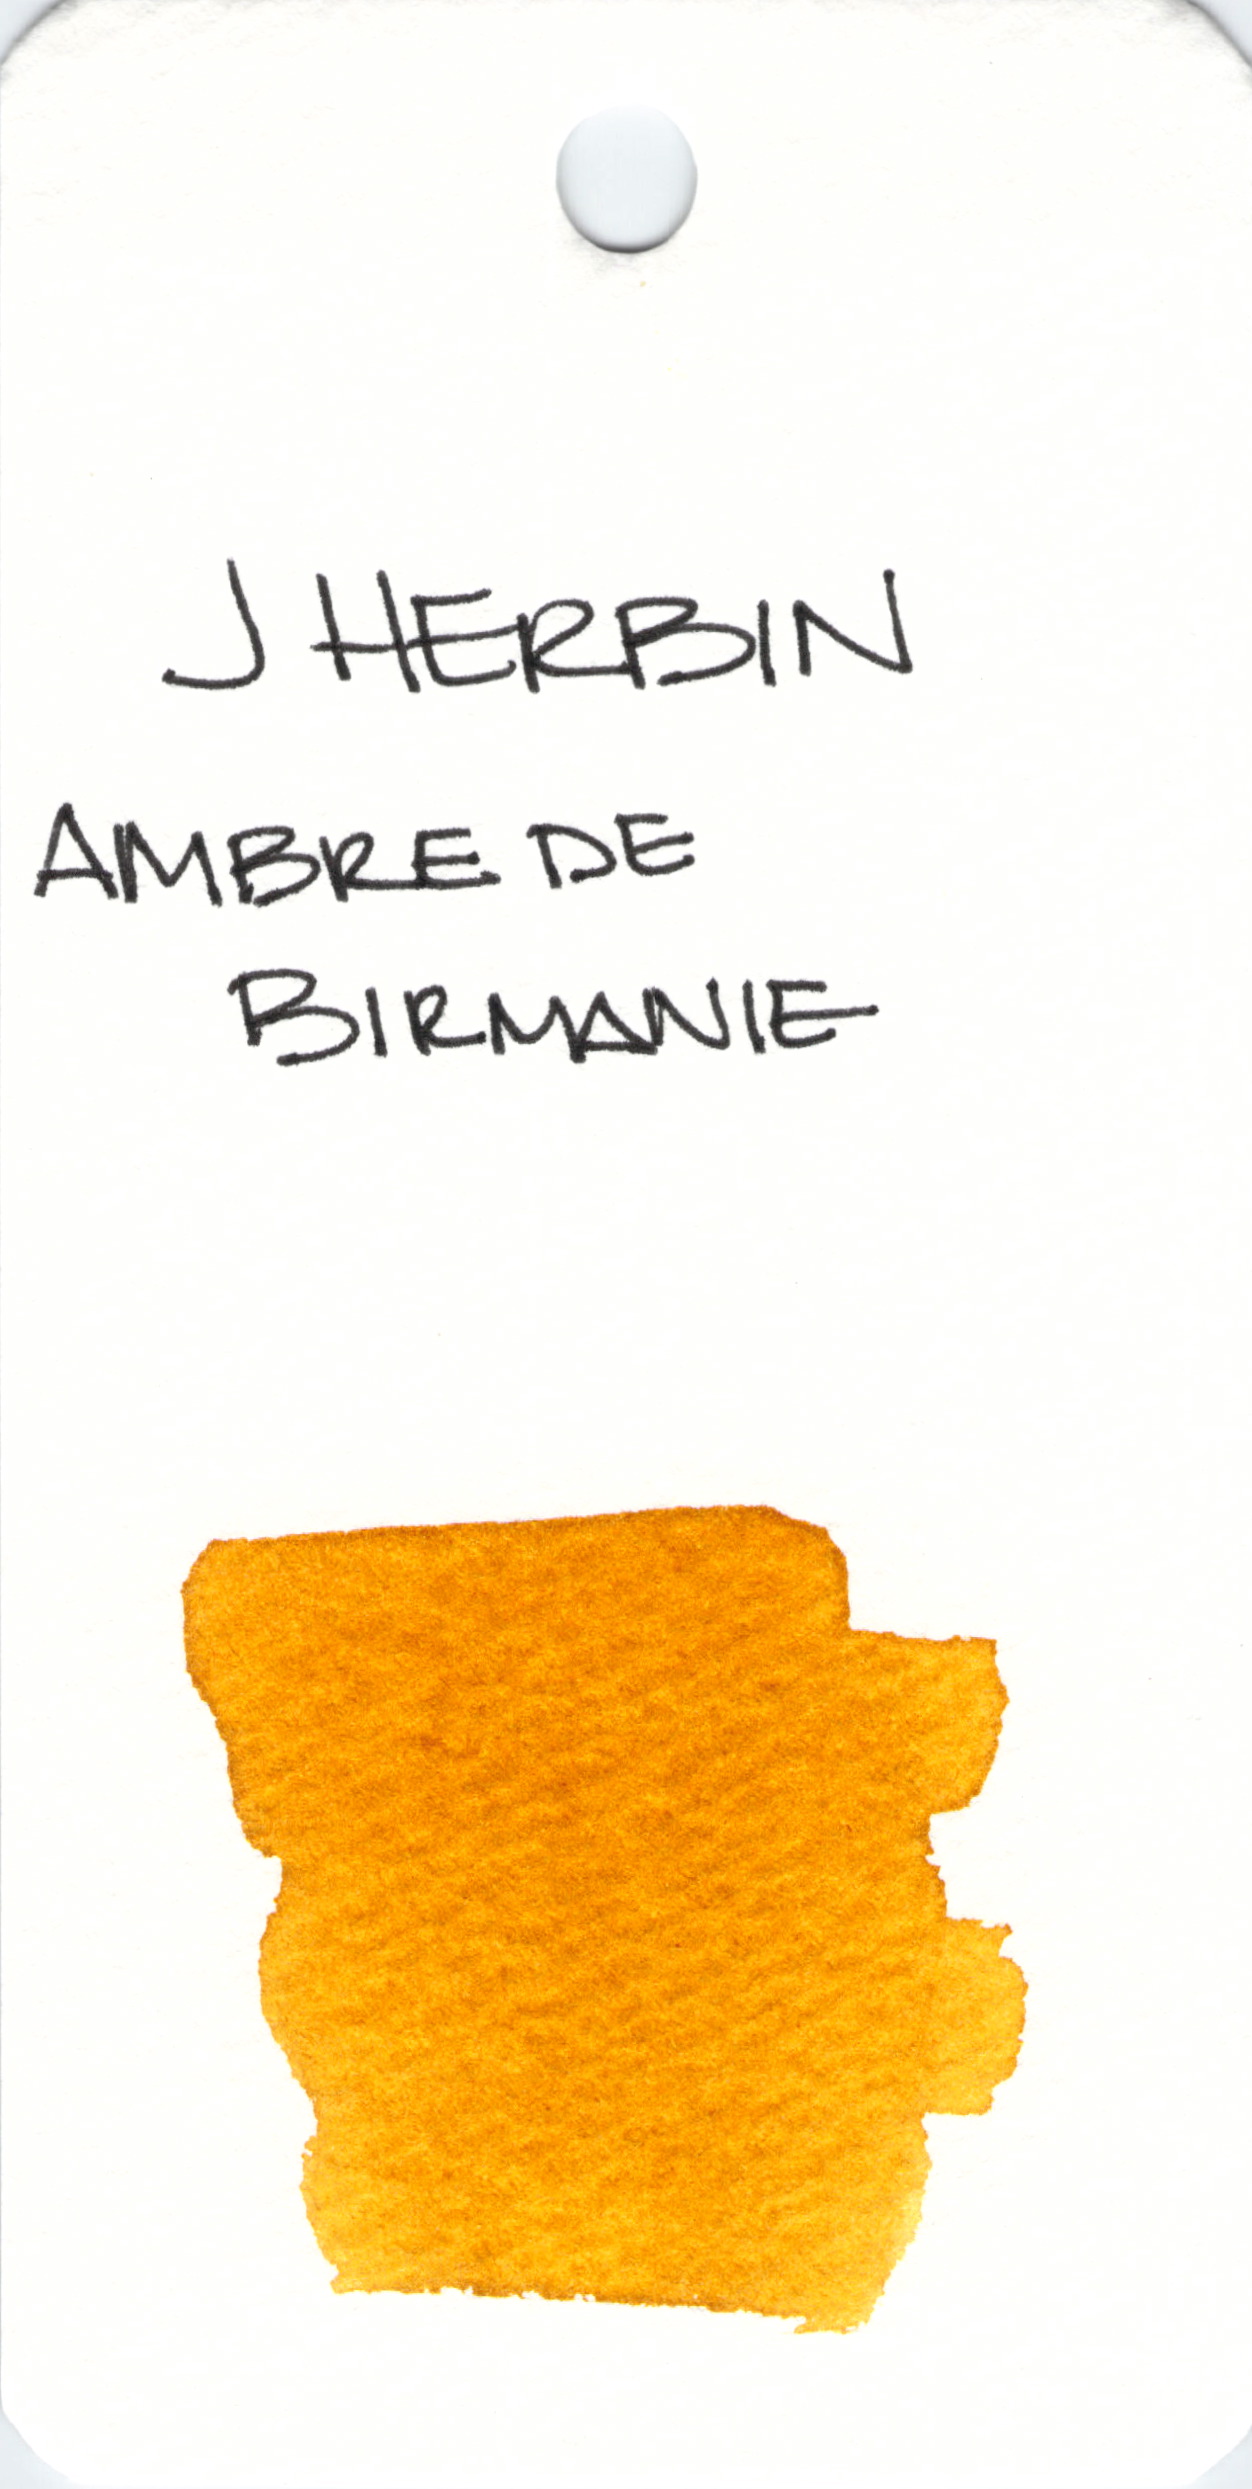 J HERBIN
AMBRE DE
BIRMANIE